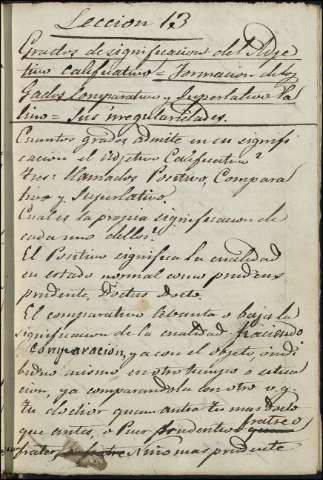 Leccion 13
Grados de significacion del Adje
tivo calificativo = Formacion de los
Gados Comparativo y Superlativo La
tino = Sus irregularidades.
Cuantos grados admite en su signifi
cacion el Adjetivo Calificativo?
tres: llamados Positivo, Compara
tivo y Superlativo.
Cual es la propia significacion de
cada uno dellos?
El Positivo significa la cualidad
en estado normal como prudens
prudente, Doctus Docto.
El comparativo lebanta o baja la
significacion de la cualidad haciendo
Comparacion, ya con el objeto indi
biduo mismo en otro tiempo o situa
cion, ya comparandola con otro v.g.
tu doctior quam antea tu mas docto
que antes, o Puer prudentior quam fratre o
frater, Niño mas prudente